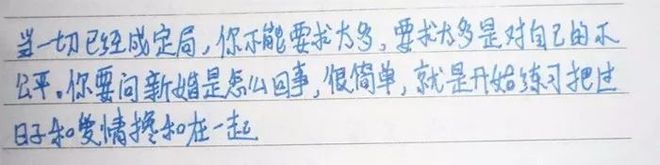 当一切已经成定局，你不能要求太多，要求太多是对自己的不
公平。你要问新婚是怎么回事，很简单，就是开始练习把过
日子和爱情搀和在一起